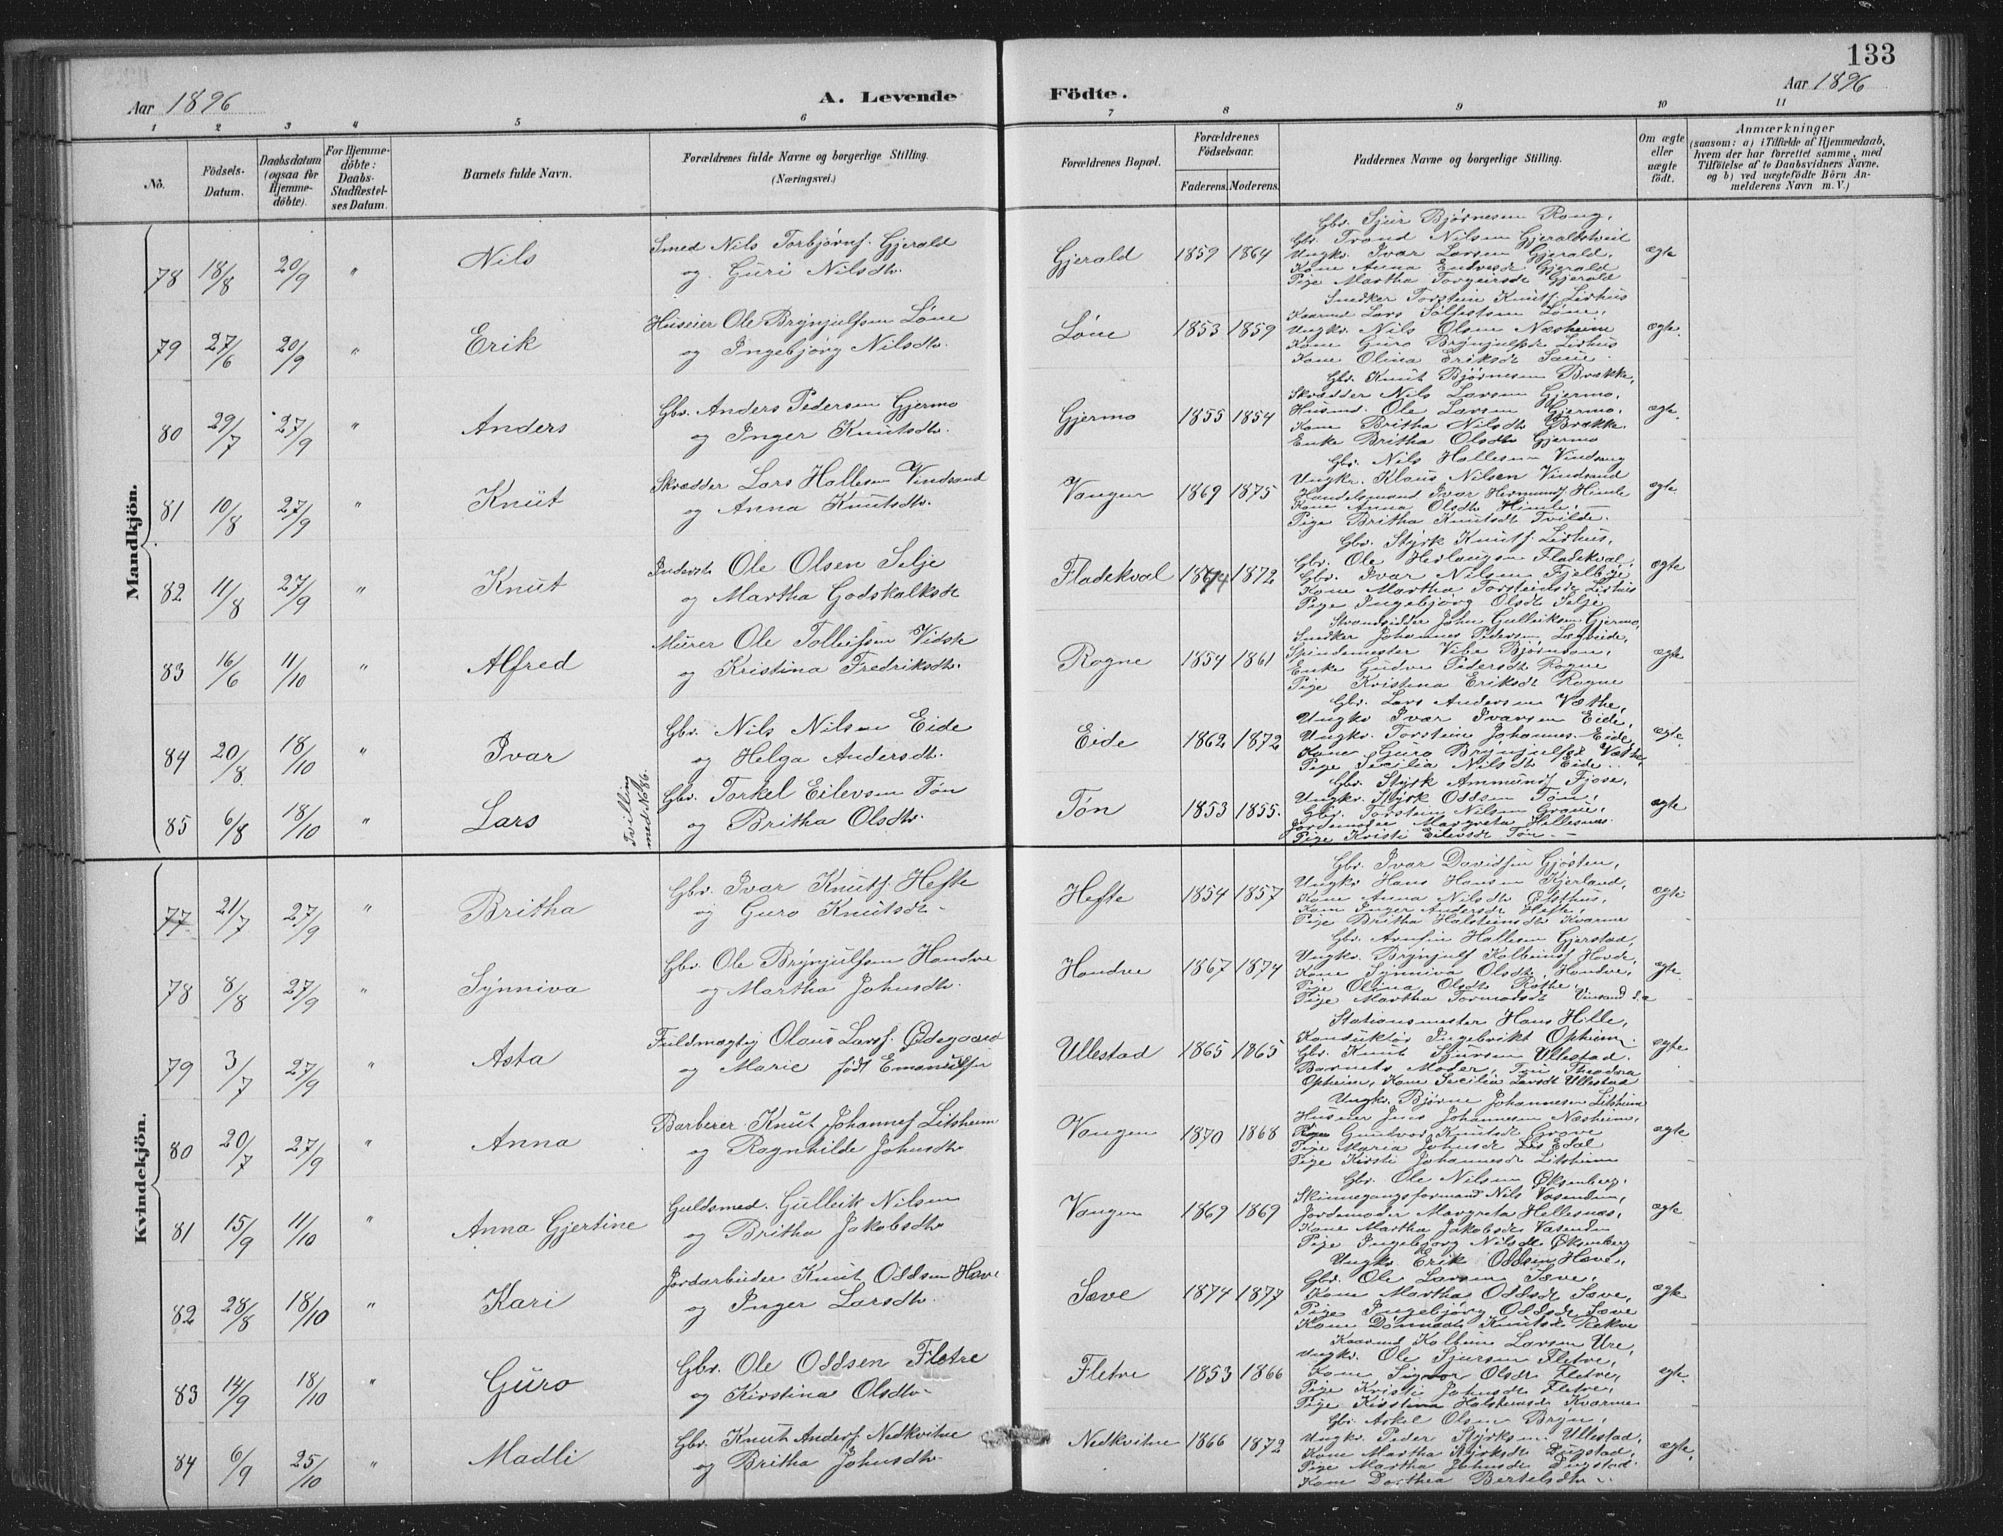 133
Aar 1896
A. Levende
Födte.
Aar 1896
1 2 3 4 5 6 7 8 9 10 11
No.
Födsels-Datum.
Daabsdatum (ogsaa for Hjemmedöbte).
For Hjemmedöbte: Daabs-Stadfæstelses Datum.
Barnets fulde Navn.
Forældrenes fulde Navne og borgerlige Stilling. (Næringsvei.)
Forældrenes Bopæl.
Forældrenes Födselsaar.
Faderens. Moderens.
Faddernes Navne og borgerlige Stilling.
Om ægte eller uægte födt.
Anmærkninger
(saasom: a) i Tilfælde af Hjemmedaab, hvem der har forrettet samme, med Tilföielse af to Daabsvidners Navne, og b) ved uægtefödte Börn Anmelderens Navn m. V.)
Mandkjön.
78 18/8 20/9 " Nils
Smed Nils Torbjørns. Gjerald
og Guri Nilsdtr.
Gjerald 1859 1864
Gbr. Sjur Bjørnesen Rong,
Gbr. Trond Nilsen Gjeraldstveit
Ungkr. Ivar Larsen Gjerald,
Kone Anna Gjerald
Pige Martha Torgeirsdt Gjerald
ægte
79 27/6 20/9 " Erik
Huseier Ole Brynjulfsen Løne
og Ingebjørg Nilsdtr.
Løne 1853 1859
Snedker Torstein Knuts. Lirhus
Kaarmd Lars Løne,
Ungkr. Nils Olsen Næsheim
Kone Guro Brynjulfsdt Lirhus
Kone Olina Eriksdt
ægte
80 29/7 27/9 " Anders
Gbr. Anders Pedersen Gjermo
og Inger Knutsdtr.
Gjermo 1855 1854
Gbr. Knut Bjørnesen Brække,
Skrædder Nils Larsen Gjermo,
Husmd. Ole Larsen Gjermo,
Kone Britha Nilsdtr Brække.
Enke Britha Olsdtr Gjermo
ægte
81 10/8 27/9 " Knut
Skrædder Lars Hallesen Vindsand
og Anna Knutsdtr.
Vangen 1869 1875
Gbr. Nils Hallesen
Ungkr. Klaus Nilsen Vindsand
Handelsmand Ivar Hermunds. Himle
Kone Anna Olsdtr Himle.
Pige Britha Knutsdt Tvilde.
ægte
82 11/8 27/9 " Knut
Inderst Ole Olsen Selje
og Martha Godskalksdt
Fladekval 1872
Gbr. Styrk Knuts. Lirhus,
Gbr. Ole Herlaugsen Fladekval,
Gbr. Ivar Nilsen Fjelbye
Kone Martha Torsteinsdt Lirhus
Pige Ingebjørg Olsdt Selje
ægte
83 16/6 11/10 " Alfred
Murer Ole Tolleifsen
og Kristina Fredriksdtr.
Rogne 1854 1861
Strandsidder John Gulleiksen Gjermo,
Snedker Johannes Pedersen
Spindemester Vibe Bjørnson,
Enke Gudve Pedersdt Rogne
Pige Kristina Eriksdt Rogne
ægte
84 20/8 18/10 " Ivar
Gbr. Nils Nilsen Eide
og Helga Andersdtr.
Eide 1862 1872
Gbr. Lars Andersen Væthe,
Ungkr Ivar Ivarsen Eide,
Ungkr. Torstein Johannes. Eide,
Kone Guro Brynjulfsd Væthe
Pige Secilia Nilsdt Eide.
ægte
85 6/8 18/10 " Lars
Tvilling med No 86.
Gbr. Torkel Eilevsen Tøn
og Britha Olsdtr.
Tøn 1853 1855.
Gbr. Styrk Ammunds. Fjose,
Ungkr. Styrk Oddsen Tøn,
Gbr. Torstein Nilsen Grove,
Jordemoder Margreta Hellesnæs,
Pige Kristi Eilevsdt Tøn
ægte
Kvindekjön.
77 21/7 27/9 " Britha
Gbr. Ivar Knuts. Hefte
og Guro Knutsdtr
Hefte 1854 1857
Gbr. Ivar Davidsen Gjøsten,
Ungkr Hans Hansen Kjerland,
Kone Anna Nilsdt Østhus,
Kone Inger Andersdt Hefte,
Pige Britha Halsteinsdt Kvarme
ægte
78 8/8 27/9 " Synniva
Gbr. Ole Brynjulfsen Hondve
og Martha Johnsdtr.
Hondve 1867 1874
Gbr. Arnfin Hallesen Gjerstad,
Ungkr. Brynjulf Kolbeins. Hovde,
Kone Synniva Olsdt Hondve,
Pige Olina Olsdt Rothe,
Pige Martha Tormodsdt Vinsand
ægte
79 3/7 27/9 " Asta
Fuldmægtig Olaus Lars. Ødegaard
og Marie født Emanuelsen
Ullestad 1865 1865
Stationsmester Hans Hille,
Konduktør Ingebrikt Opheim
Gbr. Knut Sjursen Ullestad.
Barnets Moder, Theodora
Opheim, Kone Secilia Larsdt Ullestad
ægte
80 20/7 27/9 " Anna
Barberer Knut Johannes. Litsheim
og Ragnhilde Johnsdtr
Vangen 1870 1868
Ungkr. Bjørne Johannesen Litsheim
Huseier Jens Johannesen Næsheim,
Guntvor Knutsdt Grove
Pige Maria Johnsdt Edal
Pige Kirsti Johannesdt Litsheim
ægte
81 15/9 11/10 " Anna Gjertine
Guldsmed. Gulleik Nilsen
og Britha Jakobsdtr
Vangen 1869 1869
Gbr. Ole Nilsen Øksenberg,
Skinnegangsformand Nils Vasenden,
Jordemoder Margreta Hellesnæs,
Kone Martha Jakobsdt Vasenden
Pige Ingebjørg Nilsdt Øksenberg
ægte
82 28/8 18/10 " Kari
Jordarbeider Knut Oddsen Hæve
og Inger Larsdtr.
Sæve 1874 1877
Ungkr. Erik Oddsen Hæve,
Gbr. Ole Larsen Sæve,
Kone Martha Oddsdt Sæve,
Pige Ingebjørg Oddsdt Sæve
Kone Knutsdt Rekve
ægte
83 14/9 18/10 " Guro
Gbr. Ole Oddsen Fletre
og Kirstina Olsdtr
Fletre 1853 1866
Kaarmd Kolbein Larsen Ure,
Ungkr. Ole Sjursen Fletre,
Kone Olsdt Fletre,
Pige Kristi Johnsdt Fletre,
Pige Kirstina Halsteinsdt Kvarme
ægte.
84 6/9 25/10 " Madli
Gbr. Knut Anders. Nedkvitne
og Britha Johnsdtr
Nedkvitne 1866 1872
Gbr. Askel Olsen Bryn,
Ungkr. Peder Styrksen Ullestad,
Kone Martha Styrksdt Dugstad,
Pige Martha Johnsdt Dugstad
Kone Dorthea Bertelsdtr
ægte.